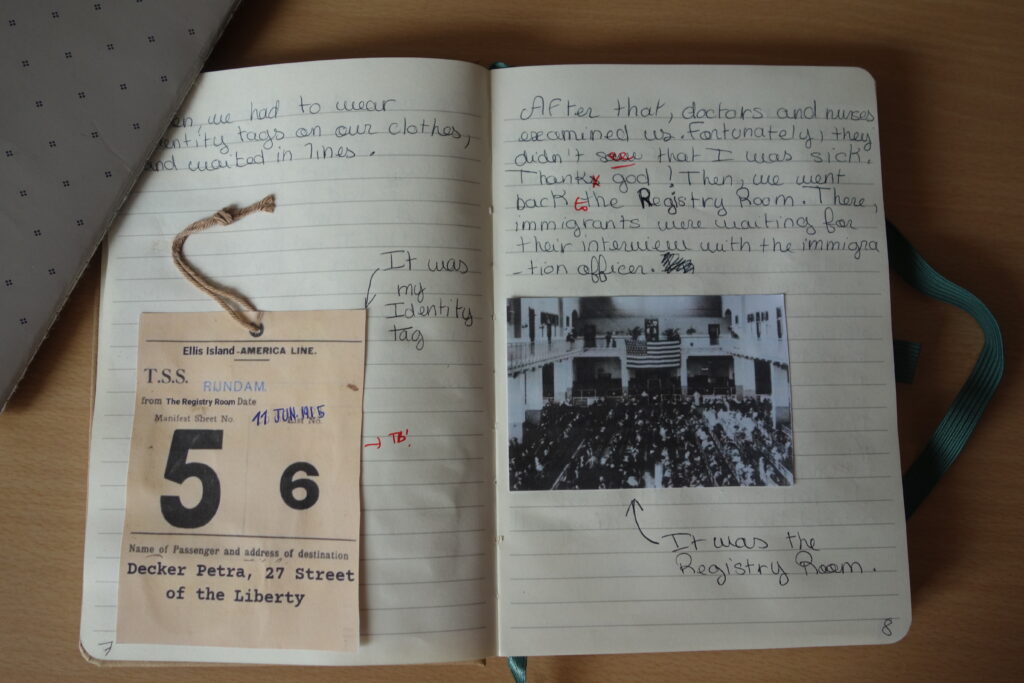 en, we had to wear
entity tags on our clothes,
and waited in lines.
It was
my
Identity
tag
Ellis Island - AMERICA LINE.
T.S.S. RIJNDAM.
from The Registry Room Date
Manifest Sheet No.
11 JUN. 1915
5 6
→ TB!
Name of Passenger and address of destination
Decker Petra, 27 Street
of the Liberty
7
After that, doctors and nurses
examined us. Fortunately, they
didn't that I was sick.
Thank god! Then, we went
back to the Registry Room. There,
immigrants were waiting for
their interview with the immigra
-tion officer.
It was the
Registry Room.
8